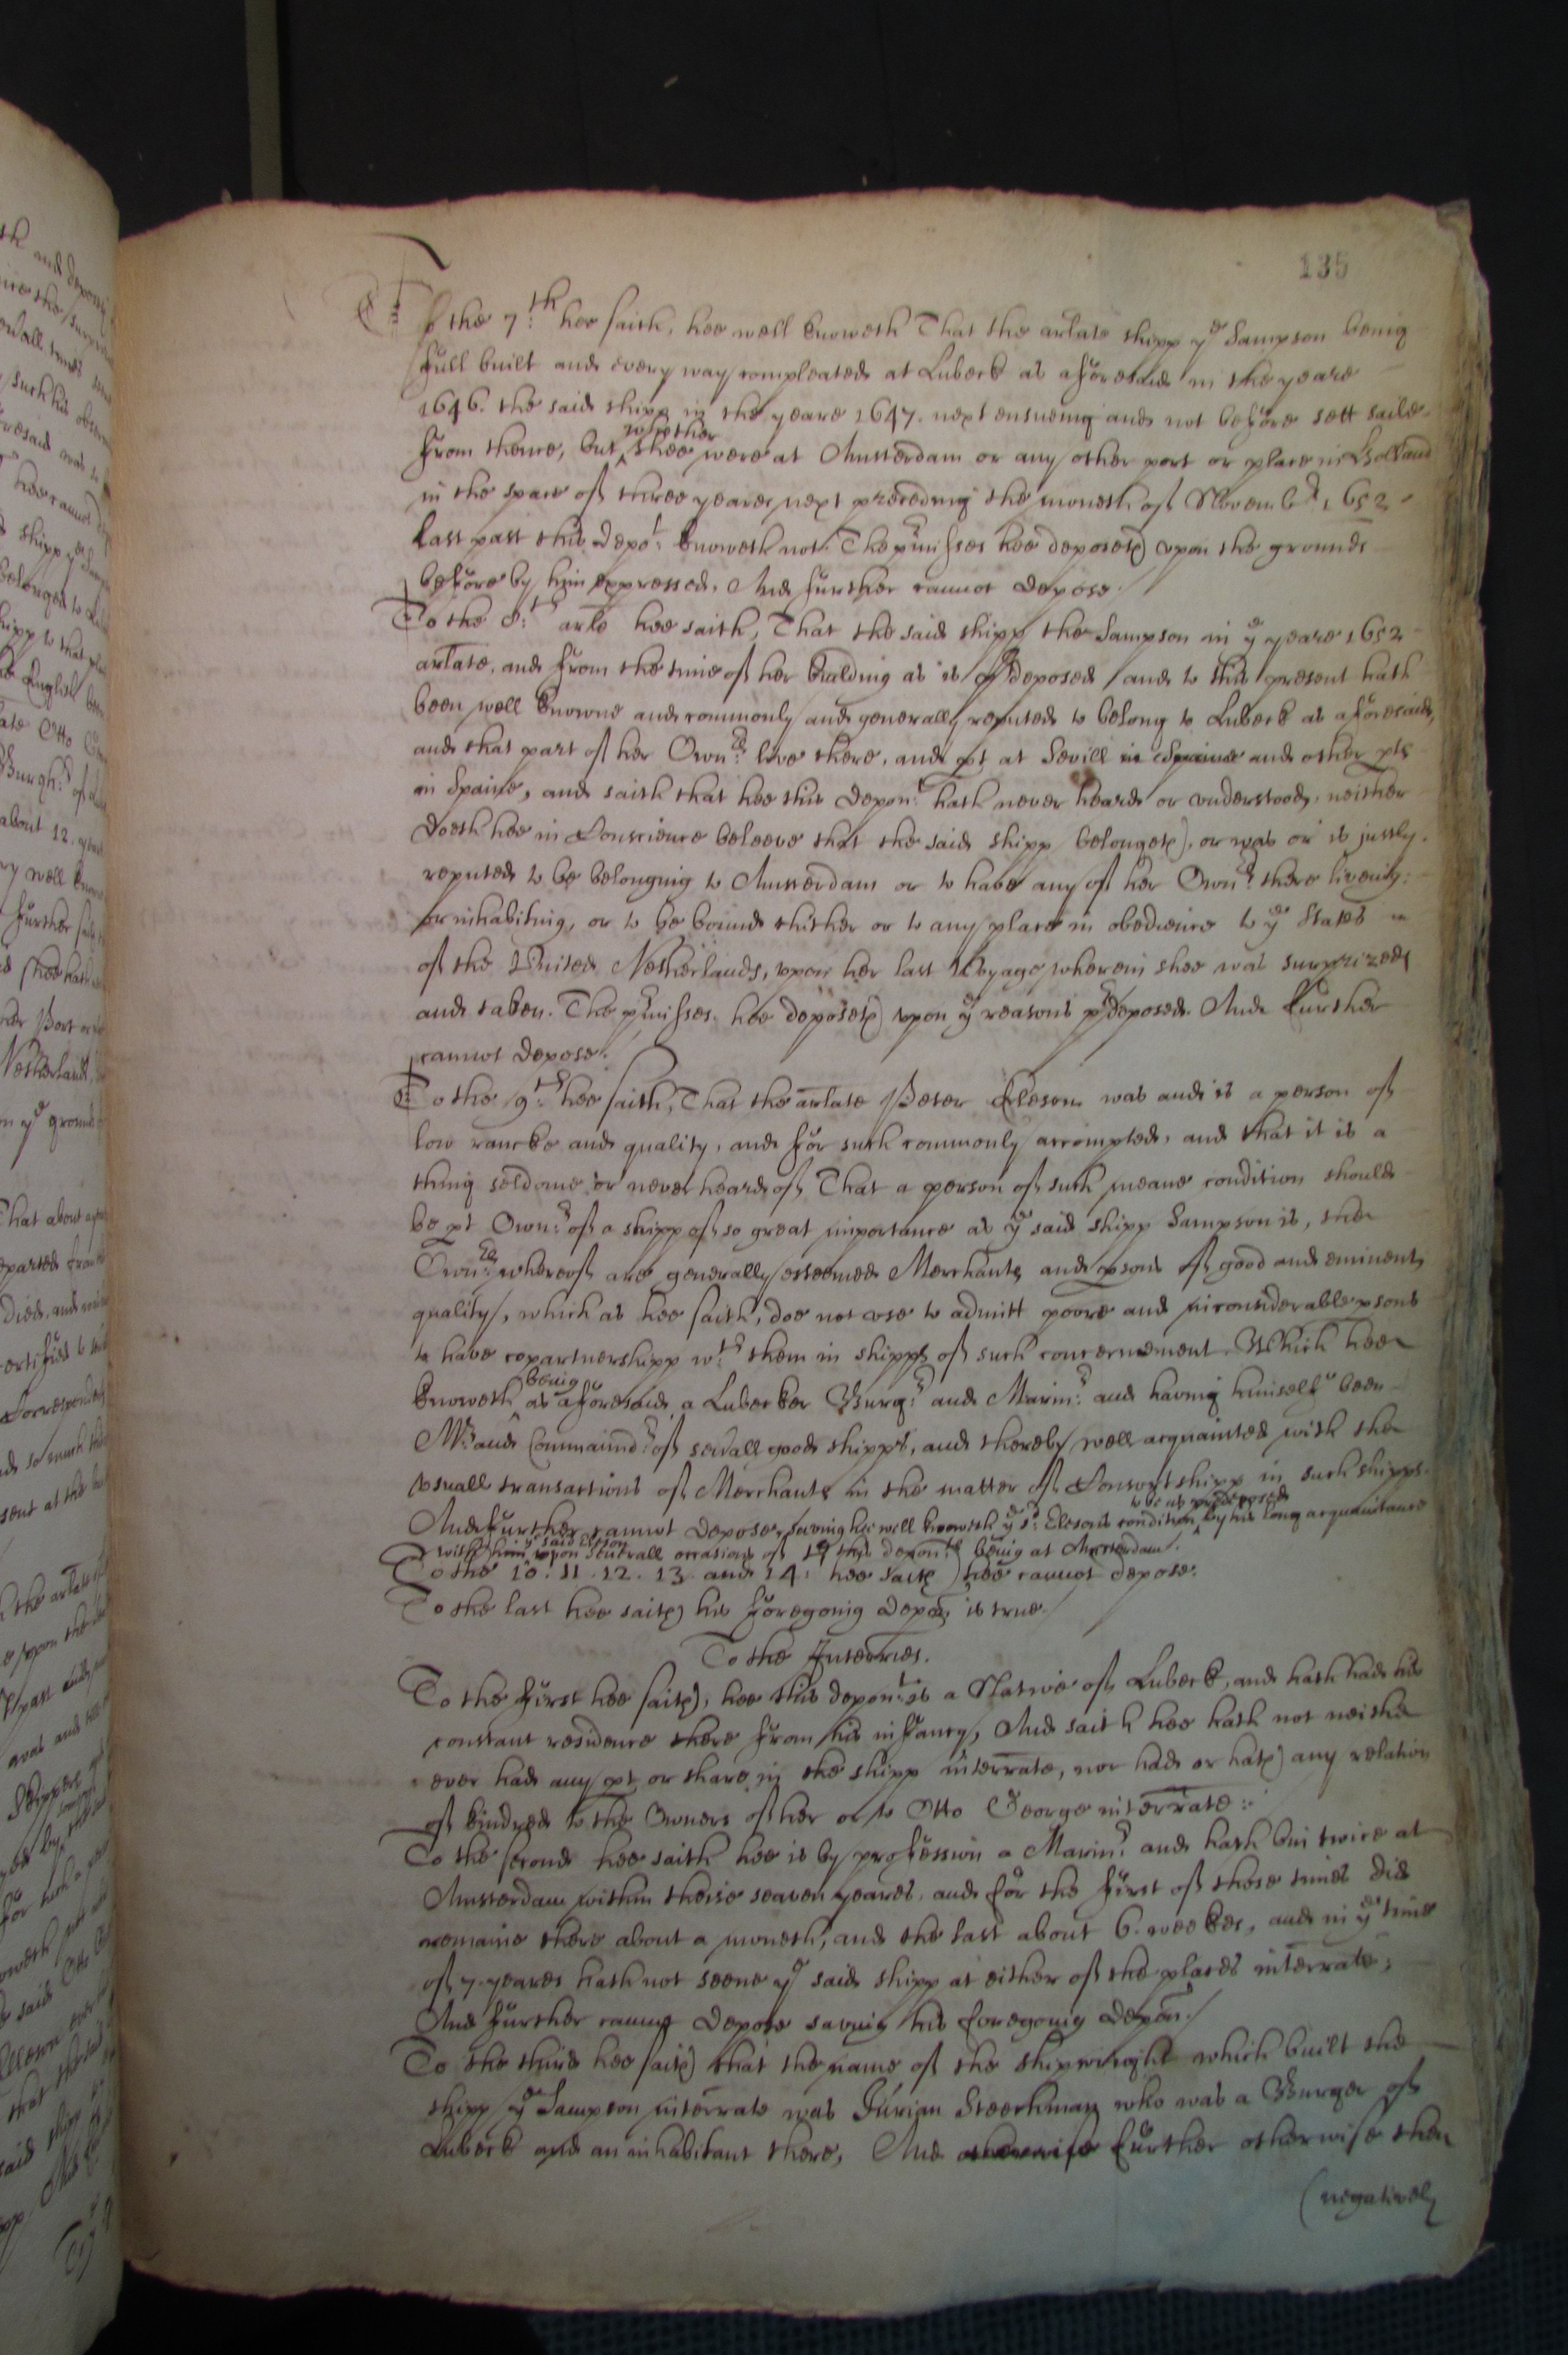 135
To the 7:th hee saith, hee well knoweth That the arlate shipp ye Sampson being
full built and every way compleated at Lubeck as aforesaid in the yeare
1646. the said shipp in the yeare 1647. next ensueing and not before sett saile
from thence, but whether shee were at Amsterdam or any other port or place in Holland
in the space of three yeares next preceding the moneth of Novembr 1652
last past this depot: knoweth not. The pmisses hee deposeth upon the grounds
before by him expressed. And further cannot depose.
To the 8:th arle hee saith, That the said shipp the Sampson in ye yeare 1652
arlate, and from the time of her building as is pdeposed and to this present hath
been well knowne and commonly and generally reputed to belong to Lubeck as aforesaid,
and that part of her Ownrs: live there, and pt at Sevill in Spaine and other pts
in Spaine, and saith that hee this depont: hath never heard or understood, neither
doeth hee in Conscience beleeve that the said shipp belongeth, or was or is justly
reputed to be belonging to Amsterdam or to have any of her Ownrs there liveing
or inhabiting, or to be bound thither or to any place in obedience to ye States
of the United Netherlands, upon her last Voyage wherein shee was surprized
and taken. The pmisses hee deposeth upon ye reasons pdeposed. And further
cannot depose.
To the 9:th hee saith, That the arlate Peter Eleson was and is a person of
low rancke and quality, and for such commonly accompted, and that it is a
thing seldome or never heard of That a person of such meane condition should
be pt Ownr: of a shipp of so great importance as ye said shipp Sampson is, the
Ownrs: whereof are generally esteemed Merchants and psons of good and eminent
quality, which as hee saith, doe not use to admitt poore and inconsiderable psons
to have copartnershipp wth them in shipps of such concernement. Which hee
knoweth being as aforesaid a Lubecker Burgr: and Marinr: and having himself been
Mr: and Commandr: of severall good shipps, and thereby well acquainted with the
usuall transactions of Merchants in the matter of Consortshipp in such shipps.
And further cannot depose, saving hee well knoweth ye sd: Elesons condition to be as predeposed by his long acquaintance
with ye said Eleson upon severall occasions of this deponts being at Amsterdam.
To the 10. 11. 12. 13. and 14: hee saith hee cannot depose.
To the last hee saith his foregoing depon is true.
To the Interries.
To the first hee saith, hee this depont: is a Native of Lubeck, and hath had his
constant residence there from his infancy, And saith hee hath not neither
ever had any pt or share in the shipp interrate, nor had or hath any relation
of kindred to the Owners of her or to Otto George interrate:
To the second hee saith hee is by profession a Marinr: and hath bin twice at
Amsterdam within theise seaven yeares, and for the first of those times did
remaine there about a moneth, and the last about 6. weekes, and in ye time
of 7. yeares hath not seene ye said shipp at either of the places interrate,
And further cannot depose saving his foregoing depon.
To the third hee saith that the name of the shipwright which built the
shipp ye Sampson interrate was Jurian Steerkman who was a Burger of
Lubeck and an inhabitant there, And further otherwise then
(negatively